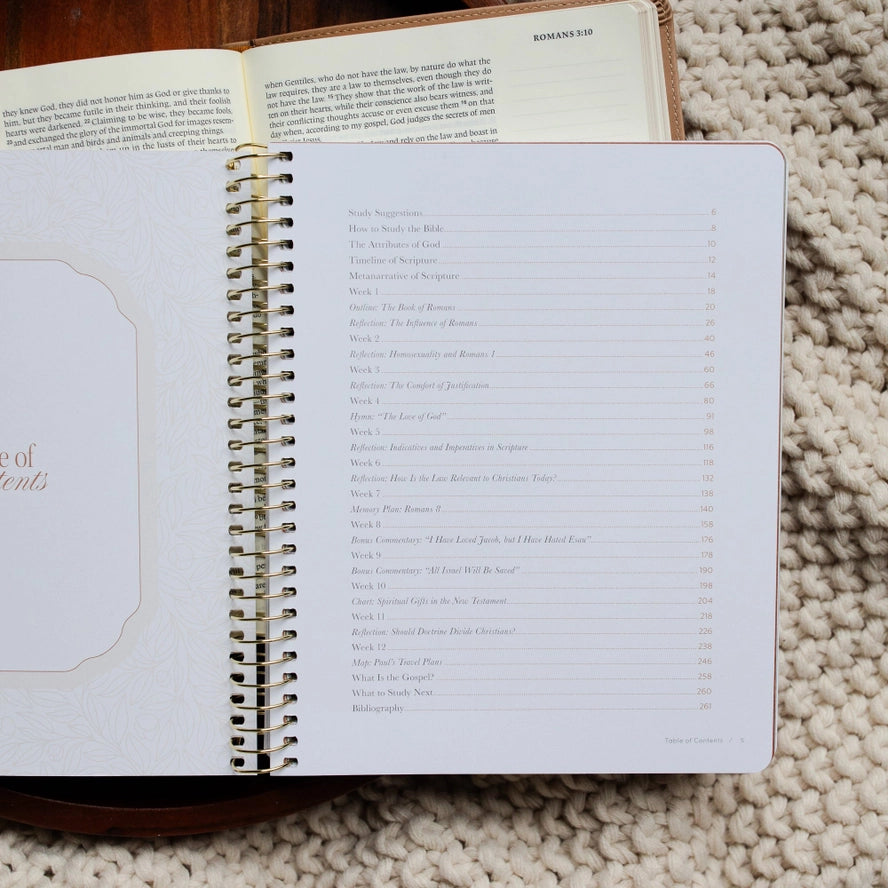 ROMANS 3:10
they knew God, they did not honor him as God or give thanks to
him, but they became futile in their thinking, and their foolish
hearts were darkened. 22 Claiming to be wise, they became fools,
23 and exchanged the glory of the immortal God for images resem-
man and birds and animals and creeping things.
in the lusts of their hearts to
when Gentiles, who do not have the law, by nature do what the
law requires, they are a law to themselves, even though they do
not have the law. 15 They show that the work of the law is writ-
ten on their hearts, while their conscience also bears witness, and
their conflicting thoughts accuse or even excuse them 16 on that
day when, according to my gospel, God judges the secrets of men
law and rely on the law and boast in
e of
tents
Study Suggestions 6
How to Study the Bible 8
The Attributes of God 10
Timeline of Scripture 12
Metanarrative of Scripture 14
Week 1 18
Outline: The Book of Romans 20
Reflection: The Influence of Romans 26
Week 2 40
Reflection: Homosexuality and Romans 1 46
Week 3 60
Reflection: The Comfort of Justification 66
Week 4 80
Hymn: "The Love of God" 91
Week 5 98
Reflection: Indicatives and Imperatives in Scripture 116
Week 6 118
Reflection: How Is the Law Relevant to Christians Today? 132
Week 7 138
Memory Plan: Romans 8 140
Week 8 158
Bonus Commentary: "I Have Loved Jacob, but I Have Hated Esau" 176
Week 9 178
Bonus Commentary: "All Israel Will Be Saved" 190
Week 10 198
Chart: Spiritual Gifts in the New Testament 204
Week 11 218
Reflection: Should Doctrine Divide Christians? 226
Week 12 238
Map: Paul's Travel Plans 246
What Is the Gospel? 258
What to Study Next 260
Bibliography 261
Table of Contents / 5